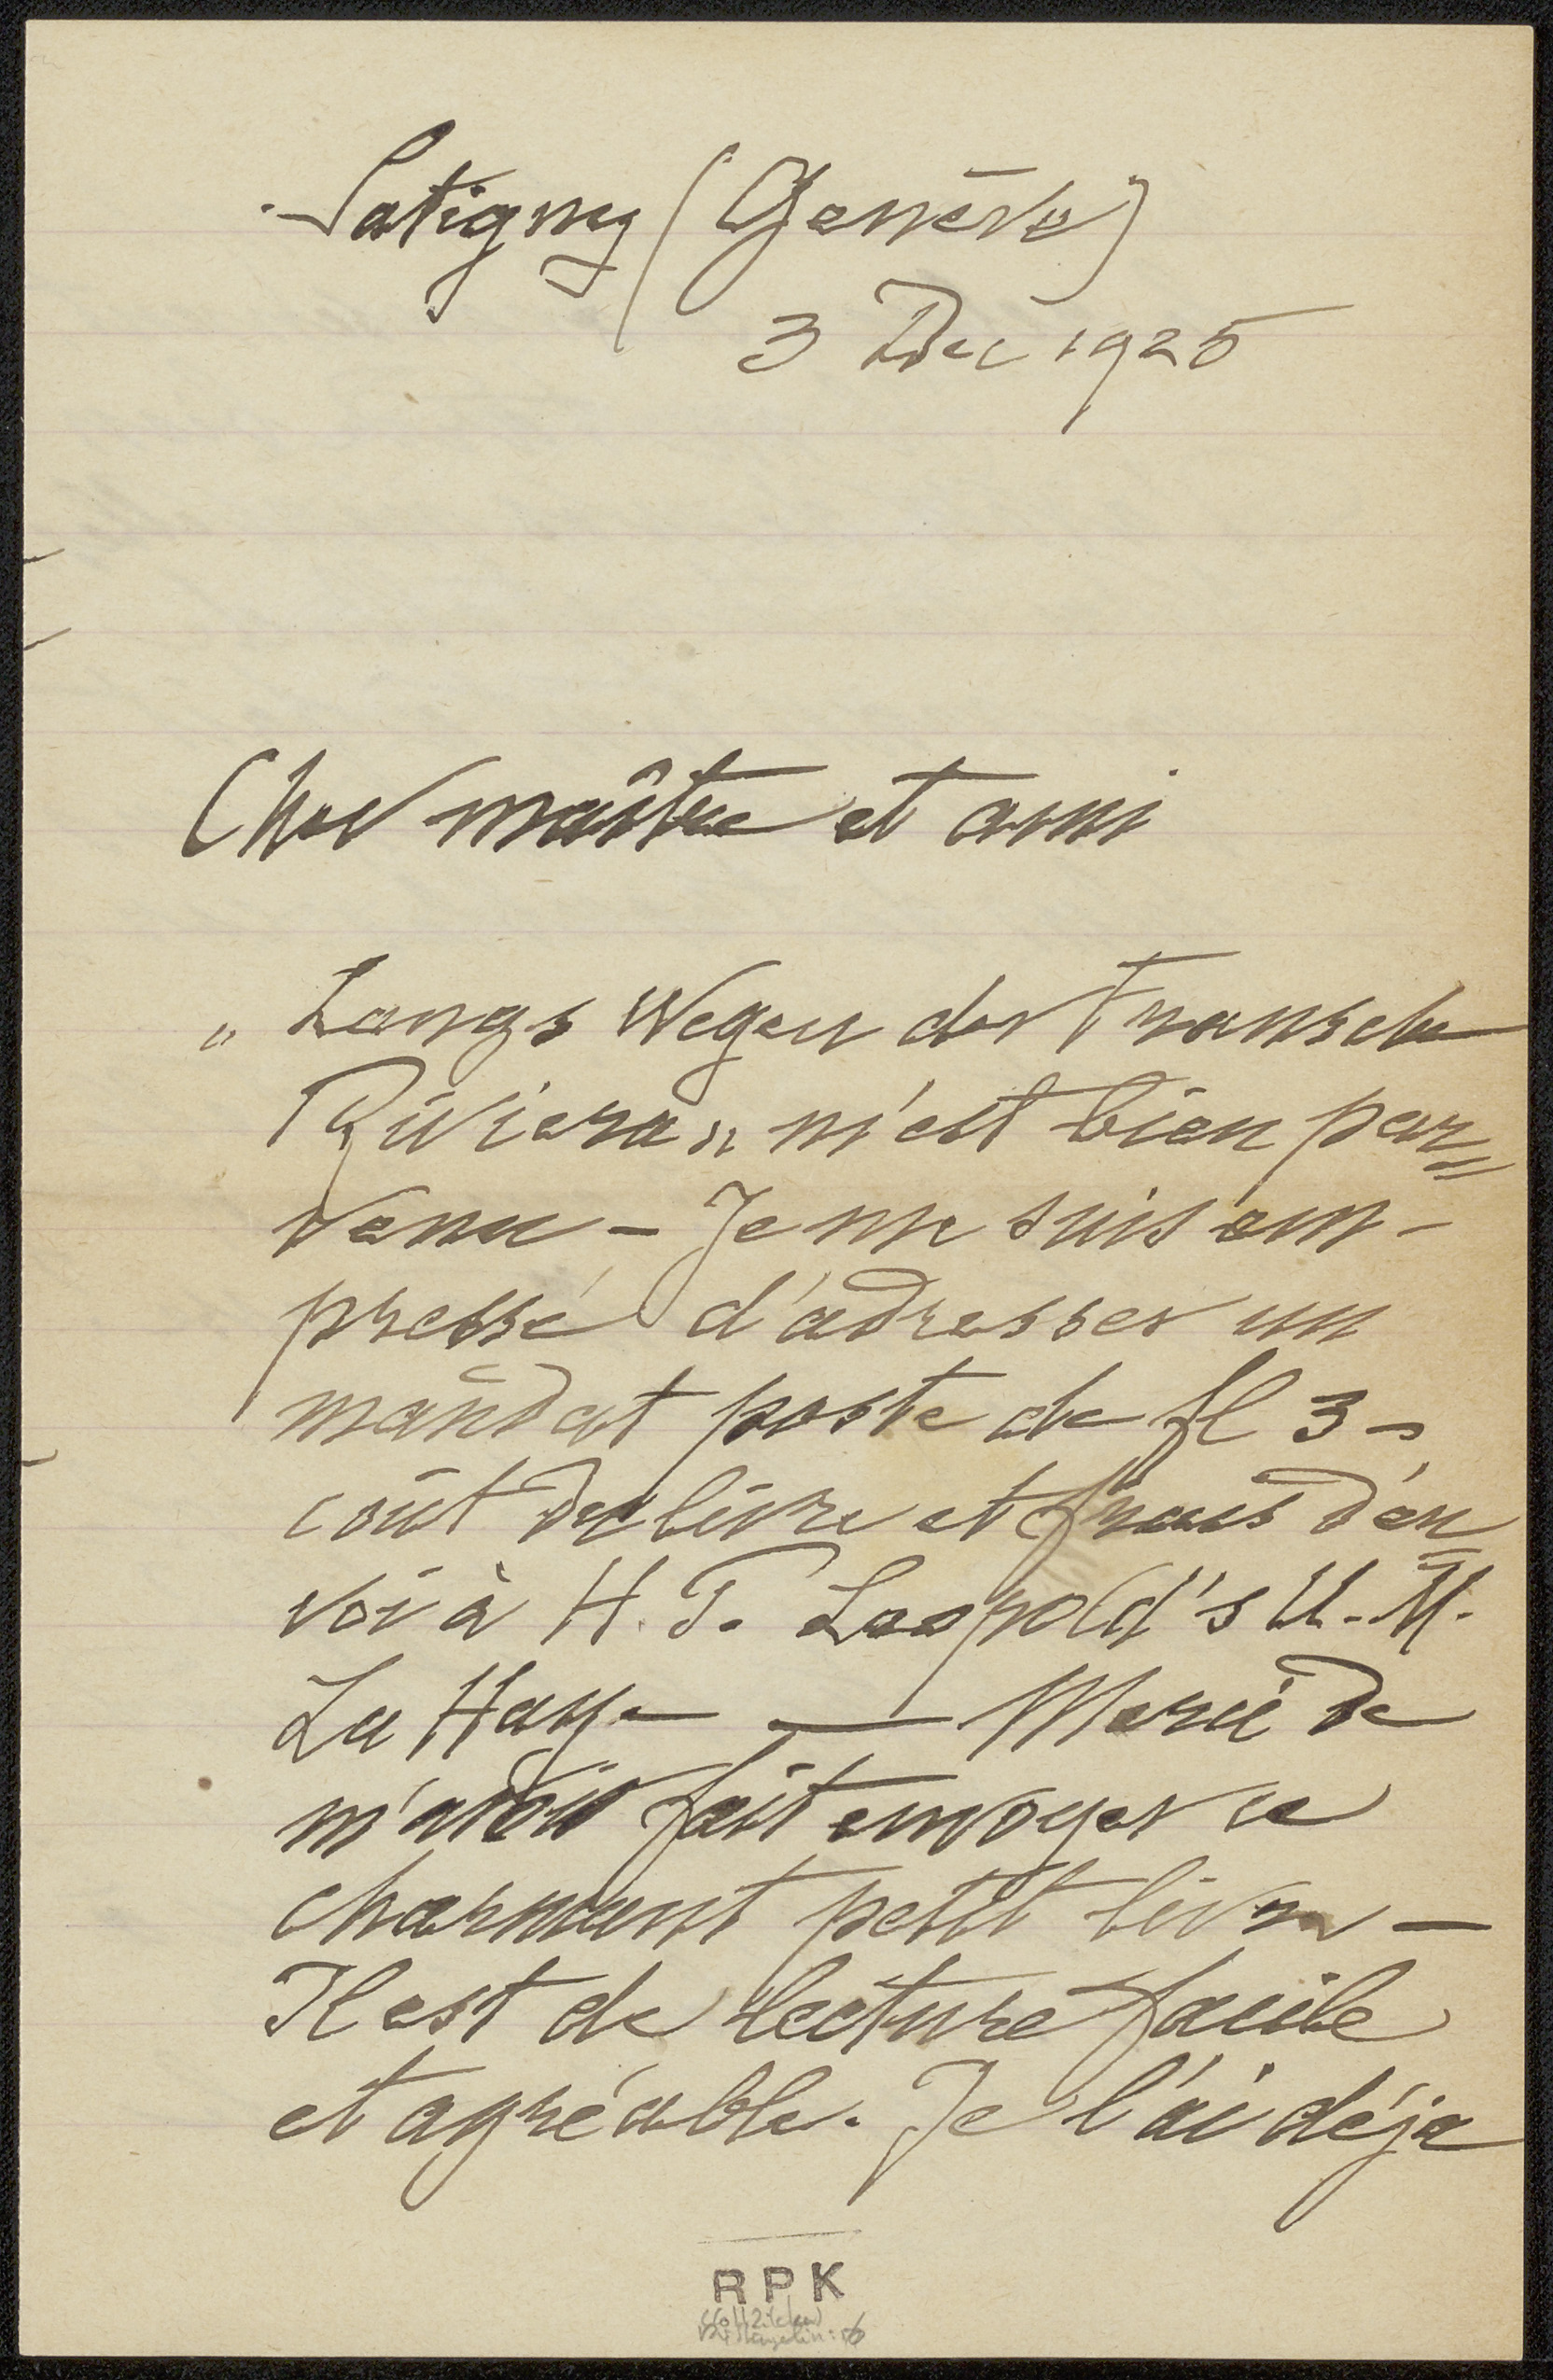 Satigny (Genève)
3 Dec 1925
Cher maître et ami
„ Langs Wegen der Fransche
Riviera „ m'est bien par=
venu – Je me suis em-
pressé d'adresser un
mandat poste de fl 3 –
coût du livre et frais d'en=
voi à H. P. Leopold's U. M.
La Haye — Merci de
m'avoir fait envoyer ce
charmant petit livre –
Il est de lecture facile
et agréable. Je l'ai déja
RPK